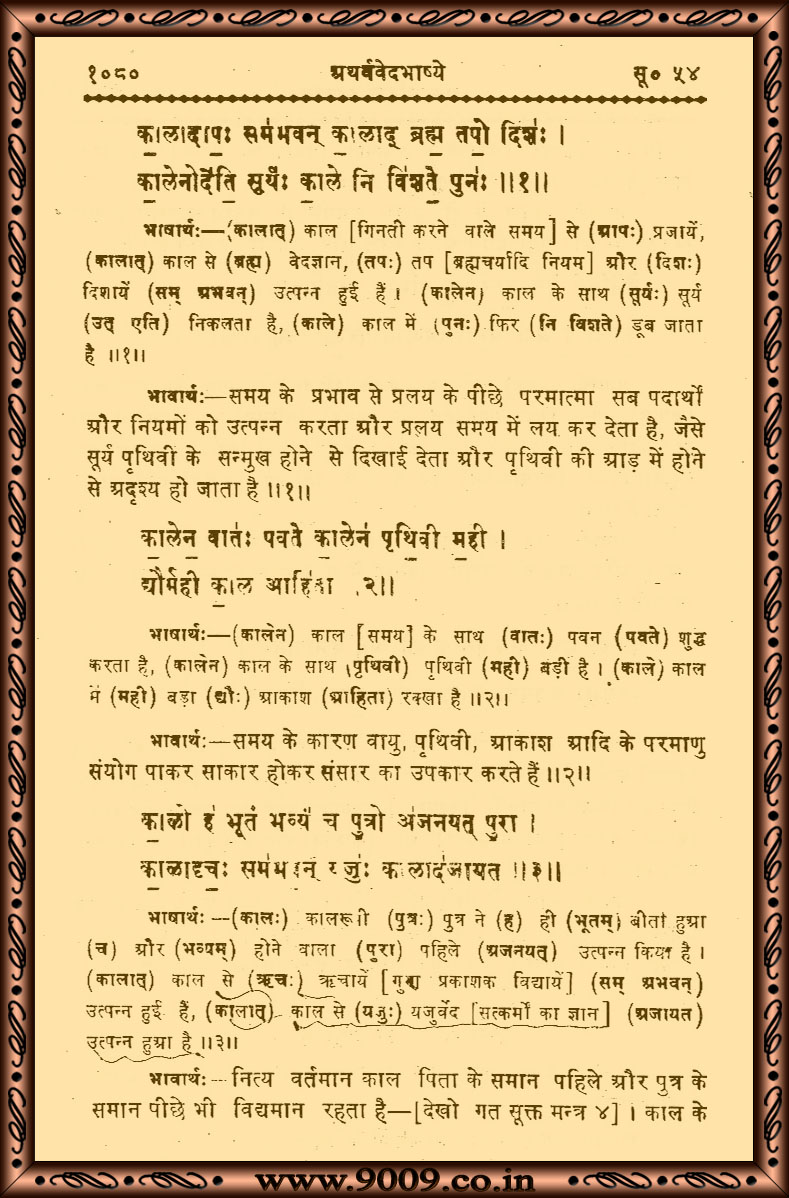 १०८०   अथर्ववेदभाष्ये   सू० ५४
कालादापः समभवन् कालाद् ब्रह्म तपो दिशः ।
कालेनोदेति सूर्यः काले नि विशते पुनः ॥१॥
भाषार्थः—(कालात्) काल [गिनती करने वाले समय] से (आपः) प्रजायें,
(कालात्) काल से (ब्रह्म) वेदज्ञान, (तपः) तप [ब्रह्मचर्यादि नियम] और (दिशः)
दिशायें (सम् अभवन्) उत्पन्न हुई हैं । (कालेन) काल के साथ (सूर्यः) सूर्य
(उत् एति) निकलता है, (काले) काल में (पुनः) फिर (नि विशते) डूब जाता
है ॥१॥
भावार्थः—समय के प्रभाव से प्रलय के पीछे परमात्मा सब पदार्थों
और नियमों को उत्पन्न करता और प्रलय समय में लय कर देता है, जैसे
सूर्य पृथिवी के सन्मुख होने से दिखाई देता और पृथिवी की आड़ में होने
से अदृश्य हो जाता है ॥१॥
कालेन वातः पवते कालेन पृथिवी मही ।
द्यौर्मही काल आहिता ।२॥
भाषार्थः—(कालेन) काल [समय] के साथ (वातः) पवन (पवते) शुद्ध
करता है, (कालेन) काल के साथ (पृथिवी) पृथिवी (मही) बड़ी है । (काले) काल
में (मही) बड़ा (द्यौः) आकाश (आहिता) रक्खा है ॥२॥
भावार्थः—समय के कारण वायु, पृथिवी, आकाश आदि के परमाणु
संयोग पाकर साकार होकर संसार का उपकार करते हैं ॥२॥
कालो ह भूतं भव्यं च पुत्रो अजनयत् पुरा ।
कालादृचः समभवन् यजुः कालादजायत ॥३॥
भाषार्थः—(कालः) कालरूपी (पुत्रः) पुत्र ने (ह) ही (भूतम्) बीता हुआ
(च) और (भव्यम्) होने वाला (पुरा) पहिले (अजनयत्) उत्पन्न किया है ।
(कालात्) काल से (ऋचः) ऋचायें [गुण प्रकाशक विद्यायें] (सम् अभवन्)
उत्पन्न हुई हैं, (कालात्) काल से (यजुः) यजुर्वेद [सत्कर्मों का ज्ञान] (अजायत)
उत्पन्न हुआ है ॥३॥
भावार्थः—नित्य वर्तमान काल पिता के समान पहिले और पुत्र के
समान पीछे भी विद्यमान रहता है—[देखो गत सूक्त मन्त्र ४] । काल के
www.9009.co.in